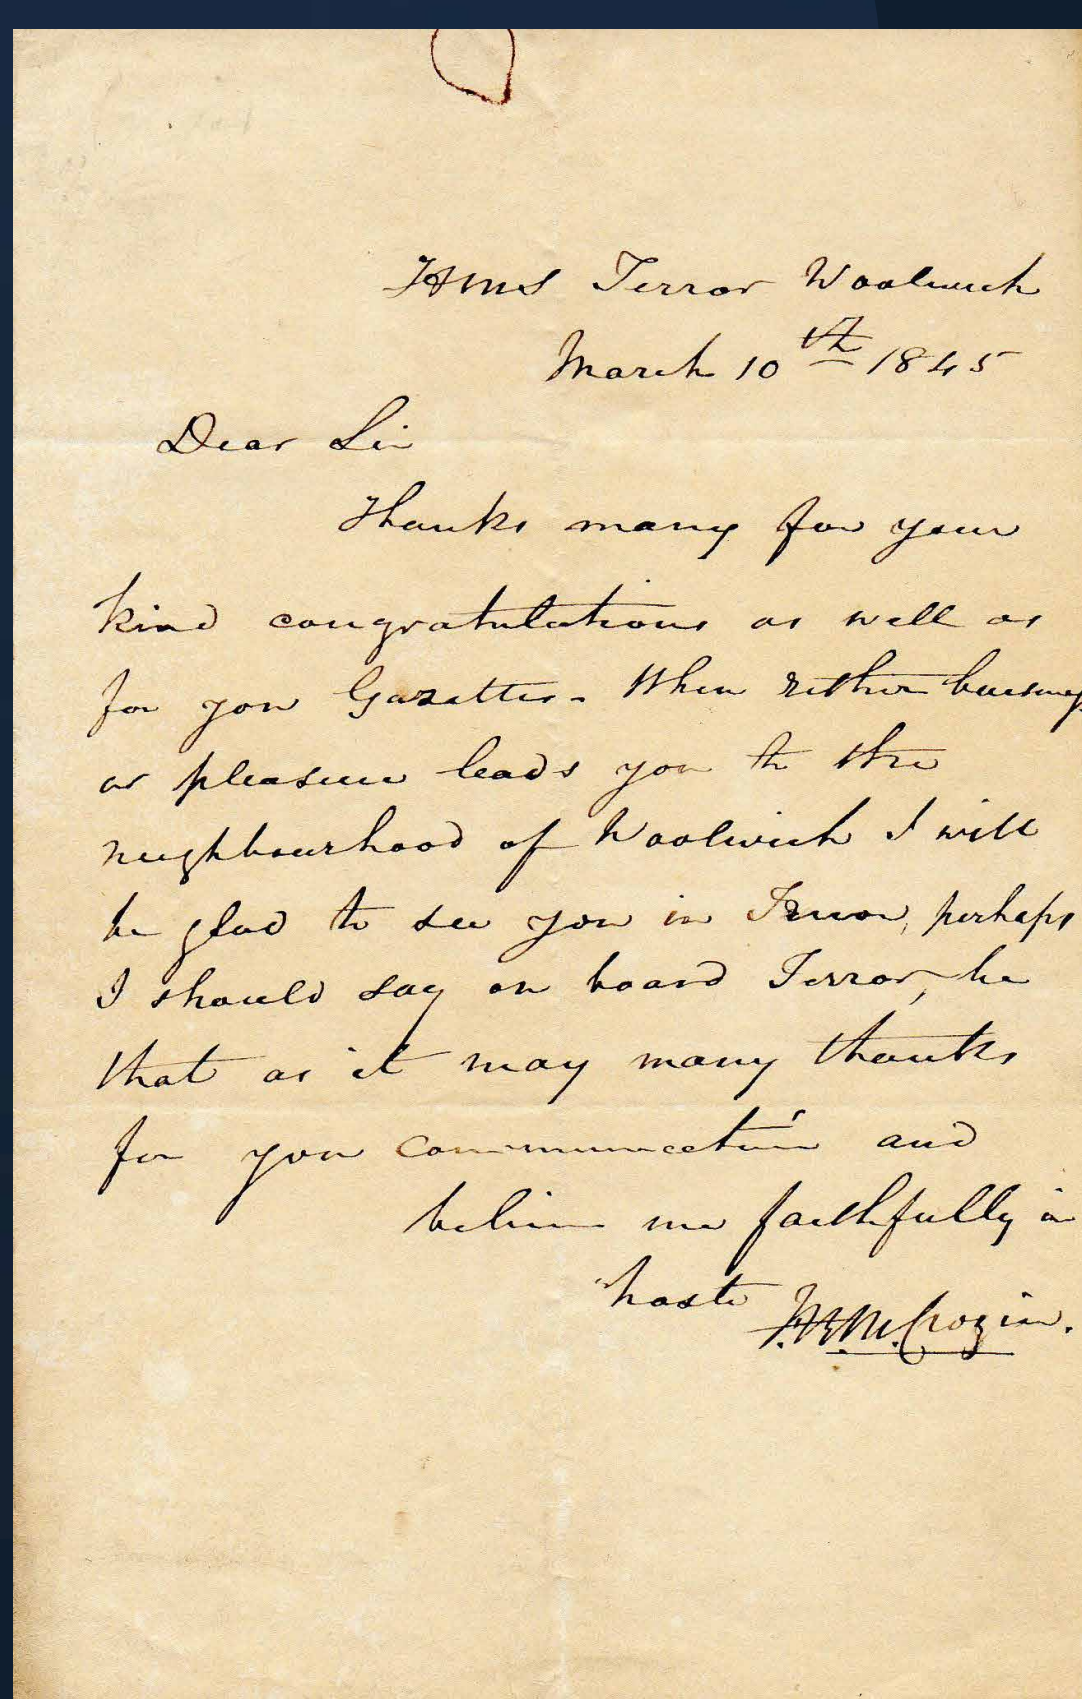 HMS Terror Woolwich
March 10th 1845
Dear Sir
Thanks many for your
kind congratulations as well as
for your Gazettes - When either business
or pleasure leads you to the
neighbourhood of Woolwich I will
be glad to see you in Terror, perhaps
I should say on board Terror, be
that as it may many thanks
for your communication and
believe me faithfully in
haste F.R.M. Crozier.